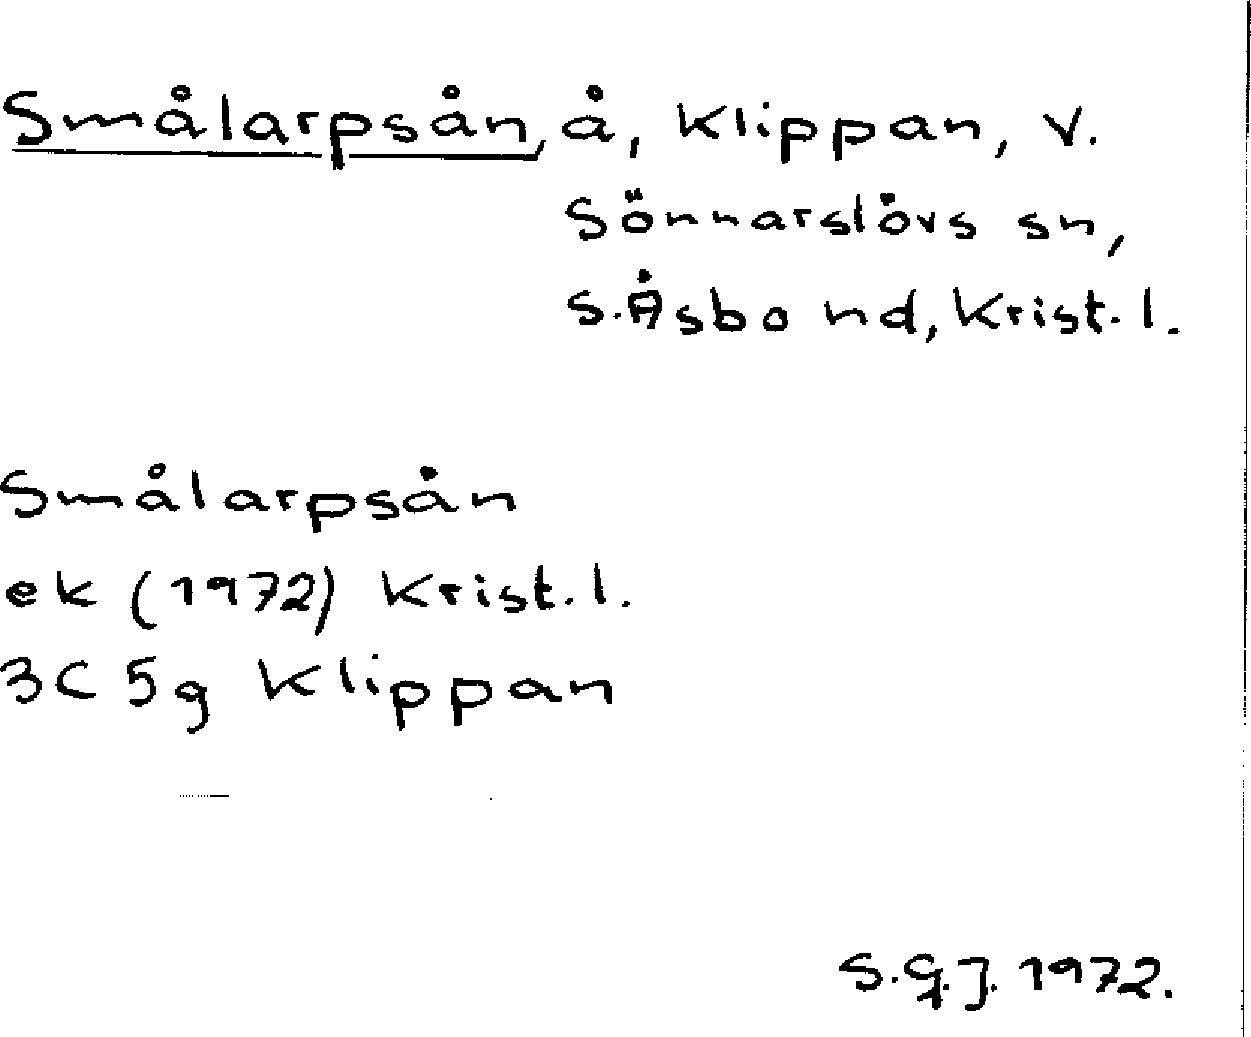 Smålarpsån, å, Klippan, V.
Sönnarslövs sn,
S.Åsbo hd, Krist.l.
Smålarpsån
ek (1972) Krist.l.
3C 5g Klippan
S.G.J. 1972.